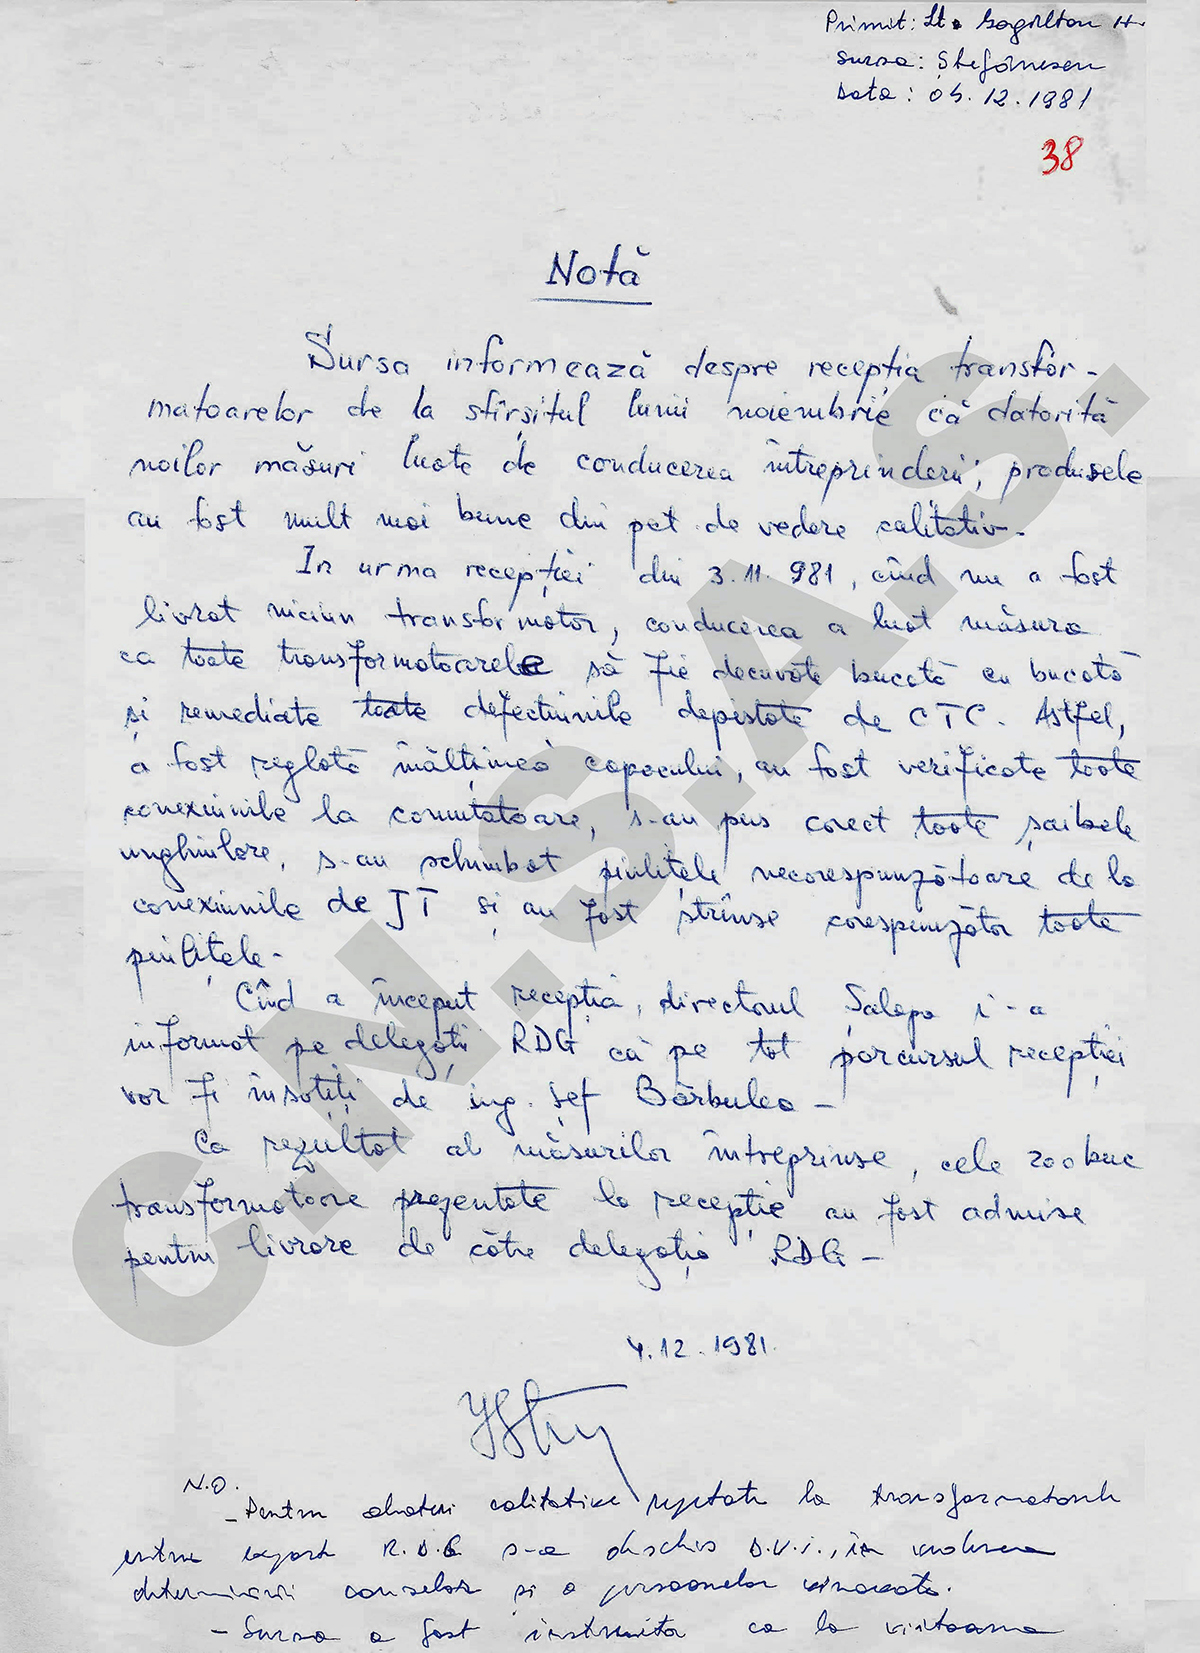 Primit: Lt.
Sursa: Ștefănescu
Data: 04.12.1981
38
Notă
Sursa informează despre recepția transfor-
matoarelor de la sfîrșitul lunii noiembrie că datorită
noilor măsuri luate de conducerea întreprinderii, produsele
au fost mult mai bune din pct de vedere calitativ-
In urma recepției din 3.11.981, cînd nu a fost
livrat niciun transformator, conducerea a luat măsura
ca toate transformatoarele să fie decuvate bucată cu bucată
și remediate toate defecțiunile depistate de CTC. Astfel,
a fost reglată înălțimea capacului, au fost verificate toate
conexiunile la comutatoare, s-au pus corect toate șaibele
unghiulare, s-au schimbat piulițele necorespunzătoare de la
conexiunile de JT și au fost strînse corespunzător toate
piulițele-
Cînd a început recepția, directorul Șalapa i-a
informat pe delegații RDG că pe tot parcursul recepției
vor fi însoțiți de ing. șef Bărbulea-
Ca rezultat al măsurilor întreprinse, cele 200 buc
transformatoare prezentate la recepție au fost admise
pentru livrare de către delegația RDG-
4.12.1981.
N.O.
- Pentru abateri calitative repetate la transformatoarele
pentru export R.D.G s-a deschis D.U.I., în vederea
determinării cauzelor și a persoanelor vinovate.
- Sursa a fost instruită ca la viitoarea
C.N.S.A.S.